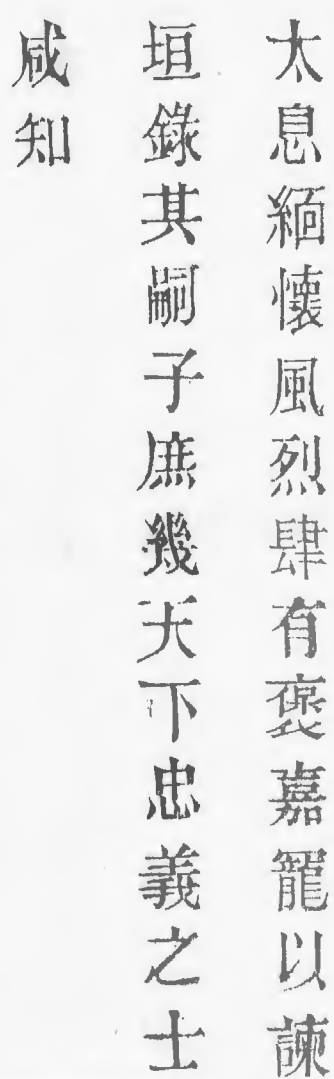 太息緬懷風烈肆有褒嘉寵以諫
垣錄其嗣子庶幾天下忠義之士
咸知